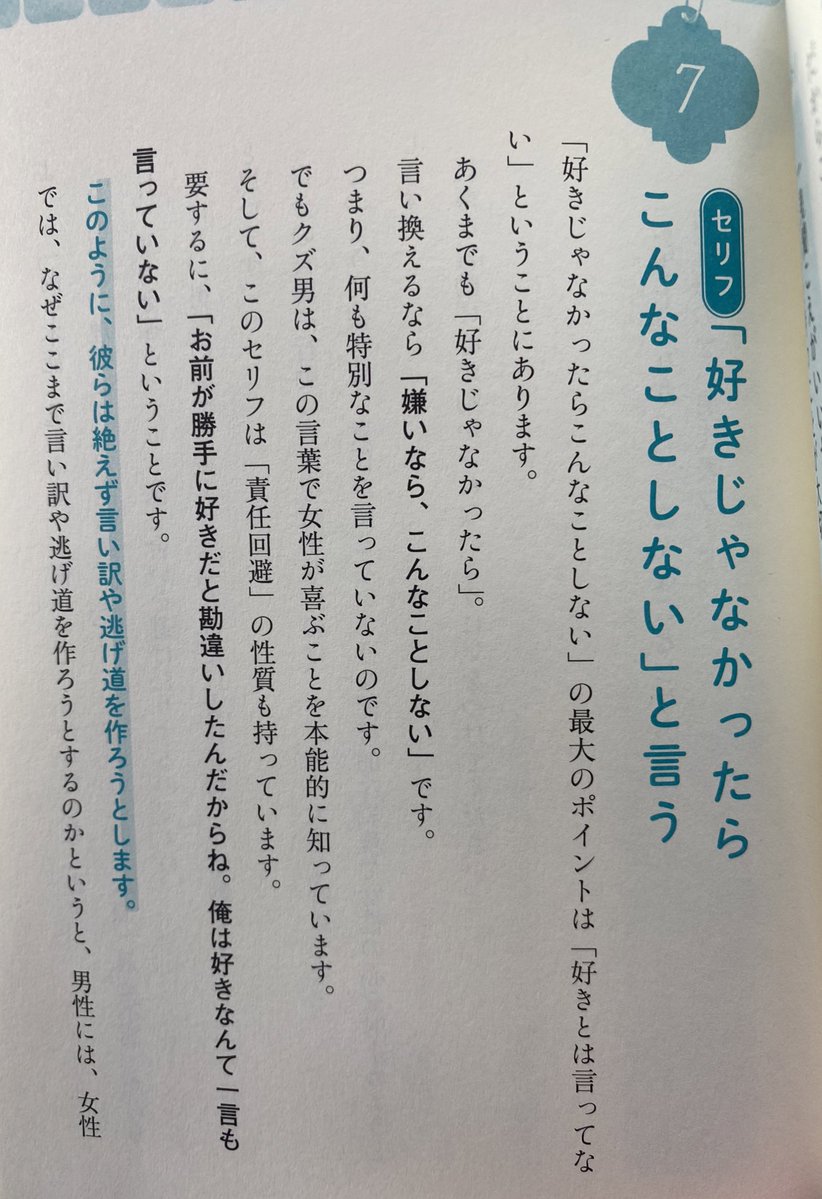 7
セリフ「好きじゃなかったら
こんなことしない」と言う
「好きじゃなかったらこんなことしない」の最大のポイントは「好きとは言ってな
い」ということにあります。
あくまでも「好きじゃなかったら」。
言い換えるなら「嫌いなら、こんなことしない」です。
つまり、何も特別なことを言っていないのです。
でもクズ男は、この言葉で女性が喜ぶことを本能的に知っています。
そして、このセリフは「責任回避」の性質も持っています。
要するに、「お前が勝手に好きだと勘違いしたんだからね。俺は好きなんて一言も
言っていない」ということです。
このように、彼らは絶えず言い訳や逃げ道を作ろうとします。
では、なぜここまで言い訳や逃げ道を作ろうとするのかというと、男性には、女性